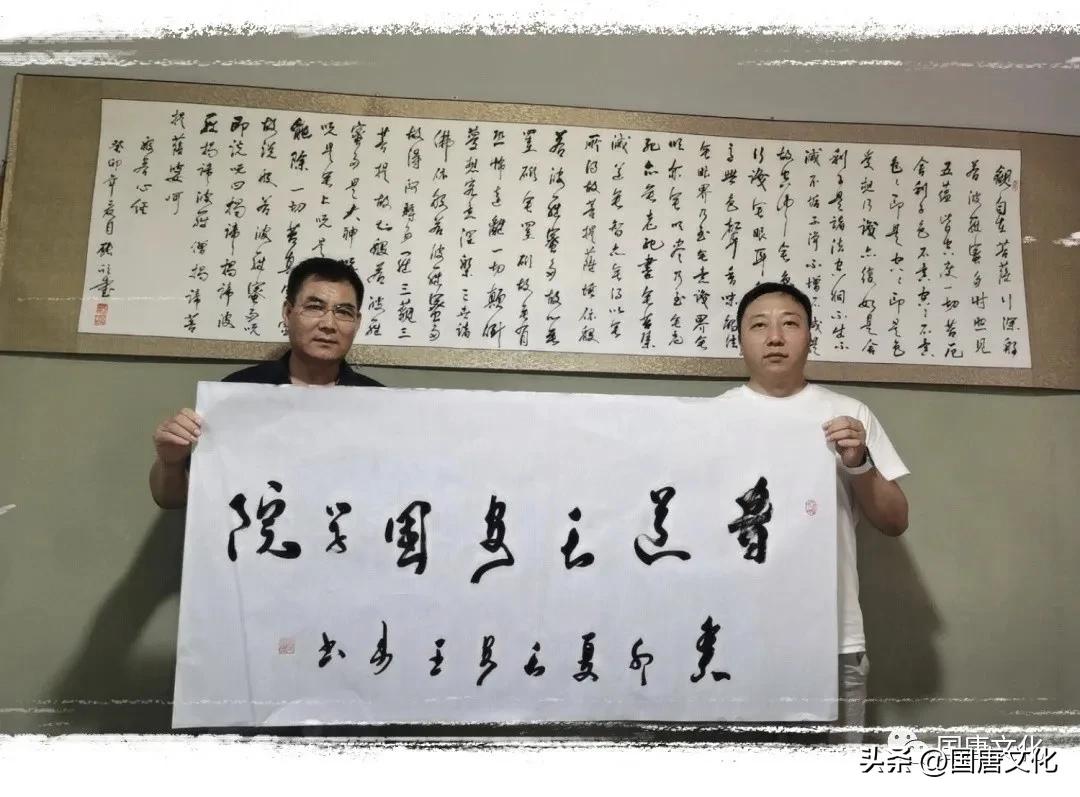 觀自在菩薩行深般
若波羅蜜多時照見
五蘊皆空度一切苦厄
舍利子色不異空空不異
色色即是空空即是色
受想行識亦復如是舍
利子是諸法空相不生不
滅不垢不淨不增不減是
故空中無色
行識無眼耳
意無色聲香味觸法
無眼界乃至無意識界無
無明亦無無明盡乃至無老
死亦無老死盡無苦集
滅道無智亦無得以無
所得故菩提薩埵依般
若波羅蜜多故心無
罣礙無罣礙故無有
恐怖遠離一切顛倒
夢想究竟涅槃三世諸
佛依般若波羅蜜多
故得阿耨多羅三藐三
菩提故知般若波羅
蜜多是大神
呪是無上呪是
能除一切苦真
故說般若波羅蜜多呪
即說呪曰揭諦揭諦波
羅揭諦波羅僧揭諦菩
提薩婆呵
般若心經
癸卯年夏月
尊道天安国学院
癸卯夏 书
国唐文化
头条 @国唐文化